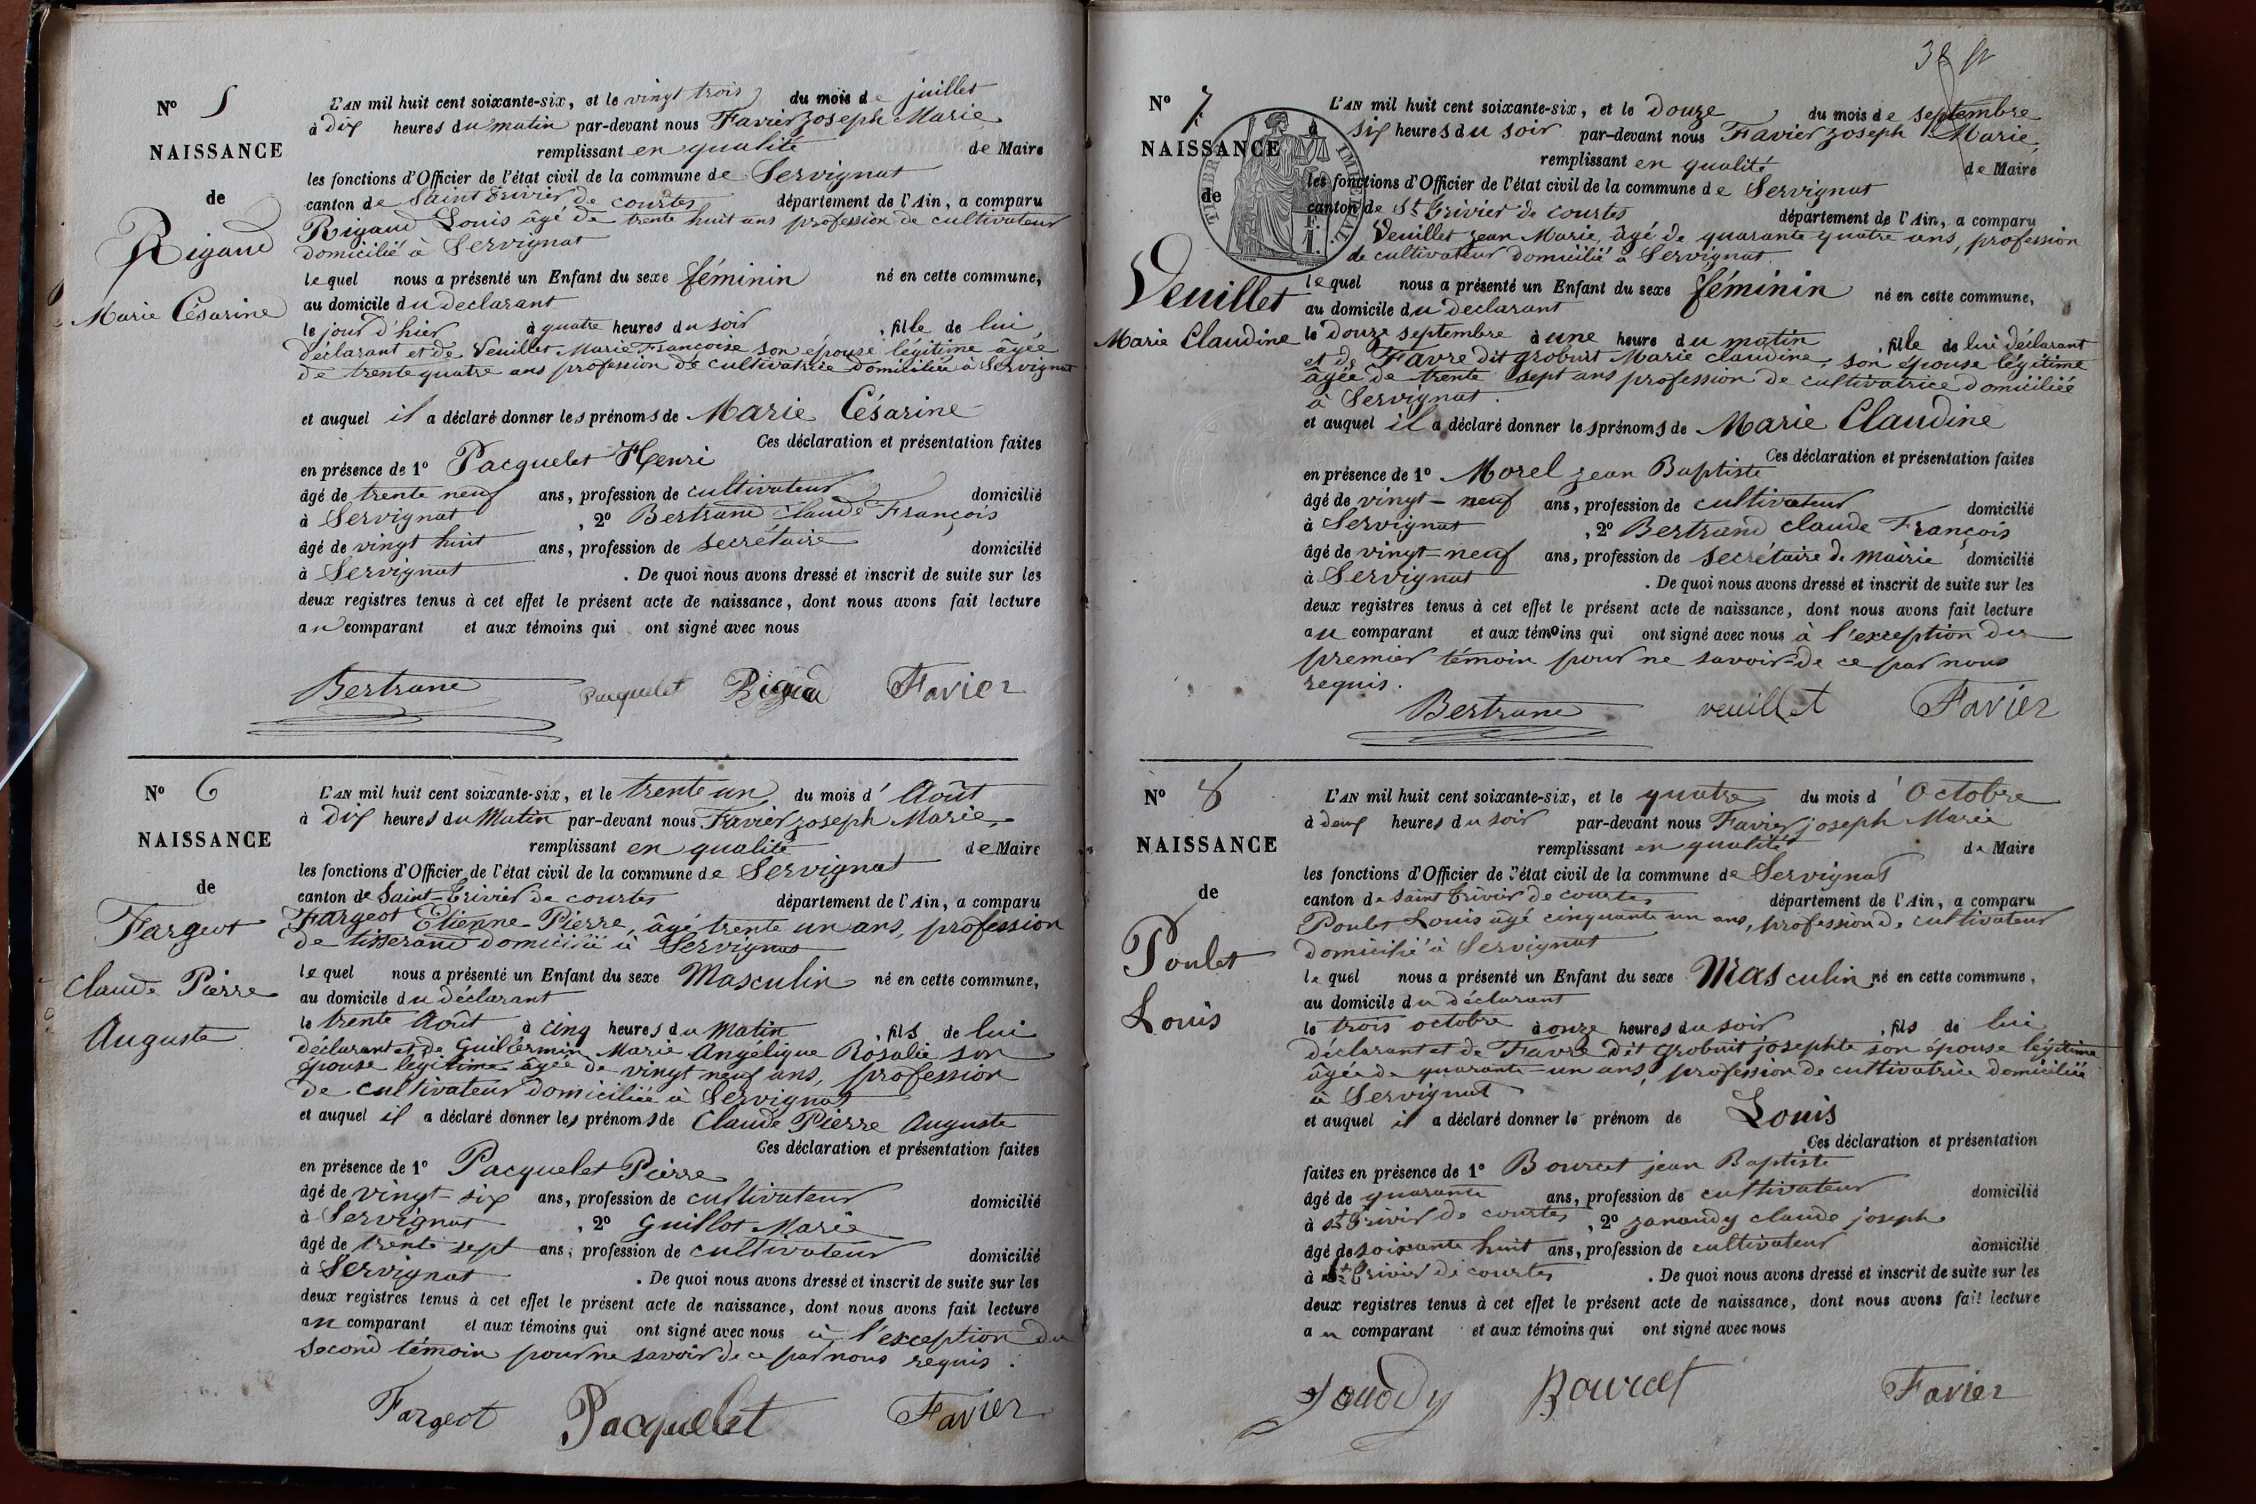 N° 5
NAISSANCE
de
Rigaud
Marie Césarine
L'AN mil huit cent soixante-six, et le vingt trois du mois de juillet
à dix heures du matin par-devant nous Favier Joseph Marie
remplissant en qualité de Maire
les fonctions d'Officier de l'état civil de la commune de Servignat
canton de Saint Trivier de courtes département de l'Ain, a comparu
Rigaud Louis âgé de trente huit ans profession de cultivateur
domicilié à Servignat
lequel nous a présenté un Enfant du sexe féminin né en cette commune,
au domicile du declarant
le jour d'hier à quatre heures du soir, fille de lui,
déclarant et de Veuillet Marie Françoise son épouse légitime âgée
de trente quatre ans profession de cultivatrice domiciliée à Servignat
et auquel il a déclaré donner les prénoms de Marie Césarine
Ces déclaration et présentation faites
en présence de 1° Pacquelet Henri
âgé de trente neuf ans, profession de cultivateur domicilié
à Servignat, 2° Bertrand Claude François
âgé de vingt huit ans, profession de secrétaire domicilié
à Servignat. De quoi nous avons dressé et inscrit de suite sur les
deux registres tenus à cet effet le présent acte de naissance, dont nous avons fait lecture
au comparant et aux témoins qui ont signé avec nous
Bertrand Pacquelet Rigaud Favier
N° 6
NAISSANCE
de
Fargeot
Claude Pierre
Auguste
L'AN mil huit cent soixante-six, et le trente un du mois d' Août
à dix heures du Matin par-devant nous Favier Joseph Marie
remplissant en qualité de Maire
les fonctions d'Officier de l'état civil de la commune de Servignat
canton de Saint-Trivier de courtes département de l'Ain, a comparu
Fargeot Etienne-Pierre, âgé trente un ans, profession
de tisserand domicilié à Servignat
lequel nous a présenté un Enfant du sexe Masculin né en cette commune,
au domicile du déclarant
le trente Août à cinq heures du Matin, fils de lui
déclarant et de Guillermin Marie Angélique Rosalie son
épouse légitime âgée de vingt neuf ans, profession
de cultivateur domiciliée à Servignat
et auquel il a déclaré donner les prénoms de Claude Pierre Auguste
Ces déclaration et présentation faites
en présence de 1° Pacquelet Pierre
âgé de vingt-six ans, profession de cultivateur domicilié
à Servignat, 2° Guillot Marie
âgé de trente sept ans, profession de cultivateur domicilié
à Servignat. De quoi nous avons dressé et inscrit de suite sur les
deux registres tenus à cet effet le présent acte de naissance, dont nous avons fait lecture
au comparant et aux témoins qui ont signé avec nous à l'exception du
second témoin pour ne savoir de ce par nous requis.
Fargeot Pacquelet Favier
N° 7
NAISSANCE
de
TIMBRE IMPERIAL
Veuillet
Marie Claudine
L'AN mil huit cent soixante-six, et le douze du mois de septembre
à six heures du soir par-devant nous Favier Joseph Marie,
remplissant en qualité de Maire
les fonctions d'Officier de l'état civil de la commune de Servignat
canton de St Trivier de courtes département de l'Ain, a comparu
Veuillet Jean Marie, âgé de quarante quatre ans, profession
de cultivateur domicilié à Servignat.
lequel nous a présenté un Enfant du sexe féminin né en cette commune,
au domicile du declarant
le douze septembre à une heure du matin, fille de lui déclarant
et de Favre dit Grobuit Marie claudine, son épouse légitime
âgée de trente sept ans profession de cultivatrice domiciliée
à Servignat.
et auquel il a déclaré donner les prénoms de Marie Claudine
Ces déclaration et présentation faites
en présence de 1° Morel Jean Baptiste
âgé de vingt-neuf ans, profession de cultivateur domicilié
à Servignat, 2° Bertrand Claude François
âgé de vingt-neuf ans, profession de secrétaire de mairie domicilié
à Servignat. De quoi nous avons dressé et inscrit de suite sur les
deux registres tenus à cet effet le présent acte de naissance, dont nous avons fait lecture
au comparant et aux témoins qui ont signé avec nous à l'exception du
premier témoin pour ne savoir de ce par nous
requis.
Bertrand veuillet Favier
N° 8
NAISSANCE
de
Poulet
Louis
L'AN mil huit cent soixante-six, et le quatre du mois d' Octobre
à deux heures du soir par-devant nous Favier joseph Marie
remplissant en qualité de Maire
les fonctions d'Officier de l'état civil de la commune de Servignat
canton de Saint Trivier de courtes département de l'Ain, a comparu
Poulet Louis âgé cinquante un ans, profession de cultivateur
domicilié à Servignat
lequel nous a présenté un Enfant du sexe Masculin né en cette commune,
au domicile du déclarant
le trois octobre à onze heures du soir, fils de lui
déclarant et de Favre dit Grobuit josephte son épouse légitime
âgée de quarante-un ans, profession de cultivatrice domiciliée
à Servignat
et auquel il a déclaré donner le prénom de Louis
Ces déclaration et présentation
faites en présence de 1° Bourcet jean Baptiste
âgé de quarante ans, profession de cultivateur domicilié
à St Trivier de courtes, 2° Janaudy claude joseph
âgé de soixante huit ans, profession de cultivateur domicilié
à St Trivier de courtes. De quoi nous avons dressé et inscrit de suite sur les
deux registres tenus à cet effet le présent acte de naissance, dont nous avons fait lecture
au comparant et aux témoins qui ont signé avec nous
Janody Bourcet Favier